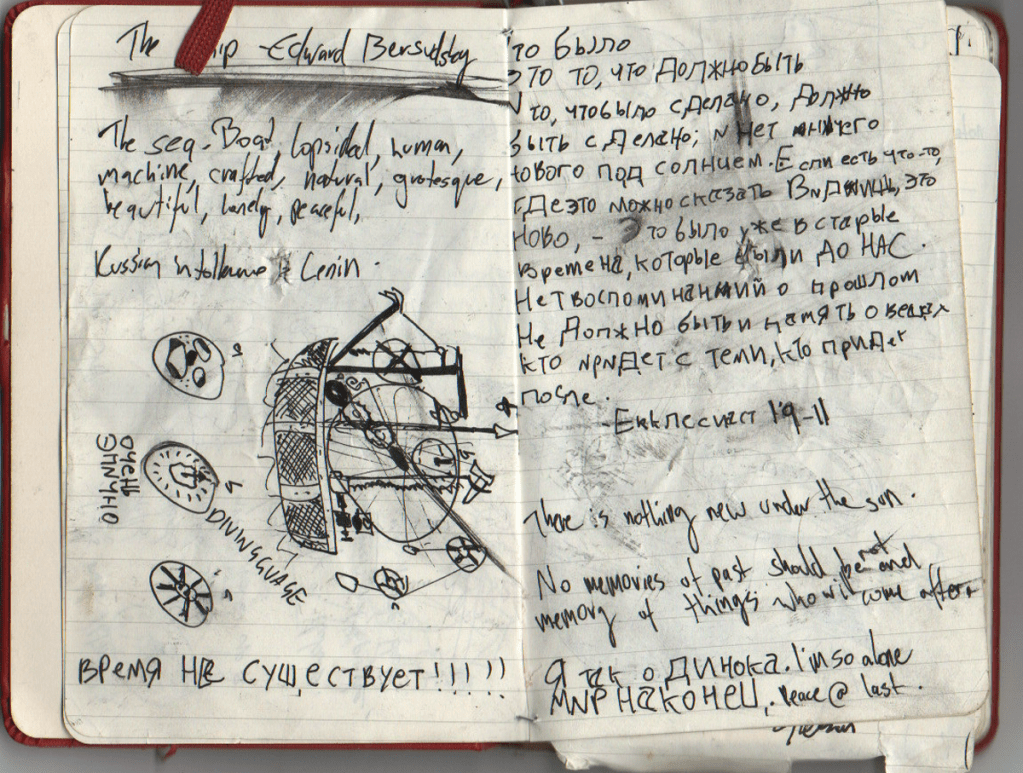 The ip - Edward Bersudsky
The sea. Boat, lopsided, human,
machine, crafted, natural, grotesque,
beautiful, lonely, peaceful,
Russian Lenin.
ОЧЕНЬ
DIVINSGUAGE
ВРЕМЯ НЕ СУЩЕСТВУЕТ!!!!!
то было
это то, что ДОЛЖНО БЫТЬ
то, что было сделано, ДОЛЖНО
быть сделано; и нет ничего
нового под солнцем. Если есть что-то,
где это можно сказать Видишь, это
ново, - это было уже в старые
времена, которые были ДО НАС.
Нет воспоминаний о прошлом
Не ДОЛЖНО быть и память о вещах
кто придет с теми, кто придет
после.
- Екклесиаст 1:9-11
There is nothing new under the sun.
No memories of past should be not and
memory of things who will come after
Я так одинока. I'm so alone
МИР НАКОНЕЦ, Peace @ last.